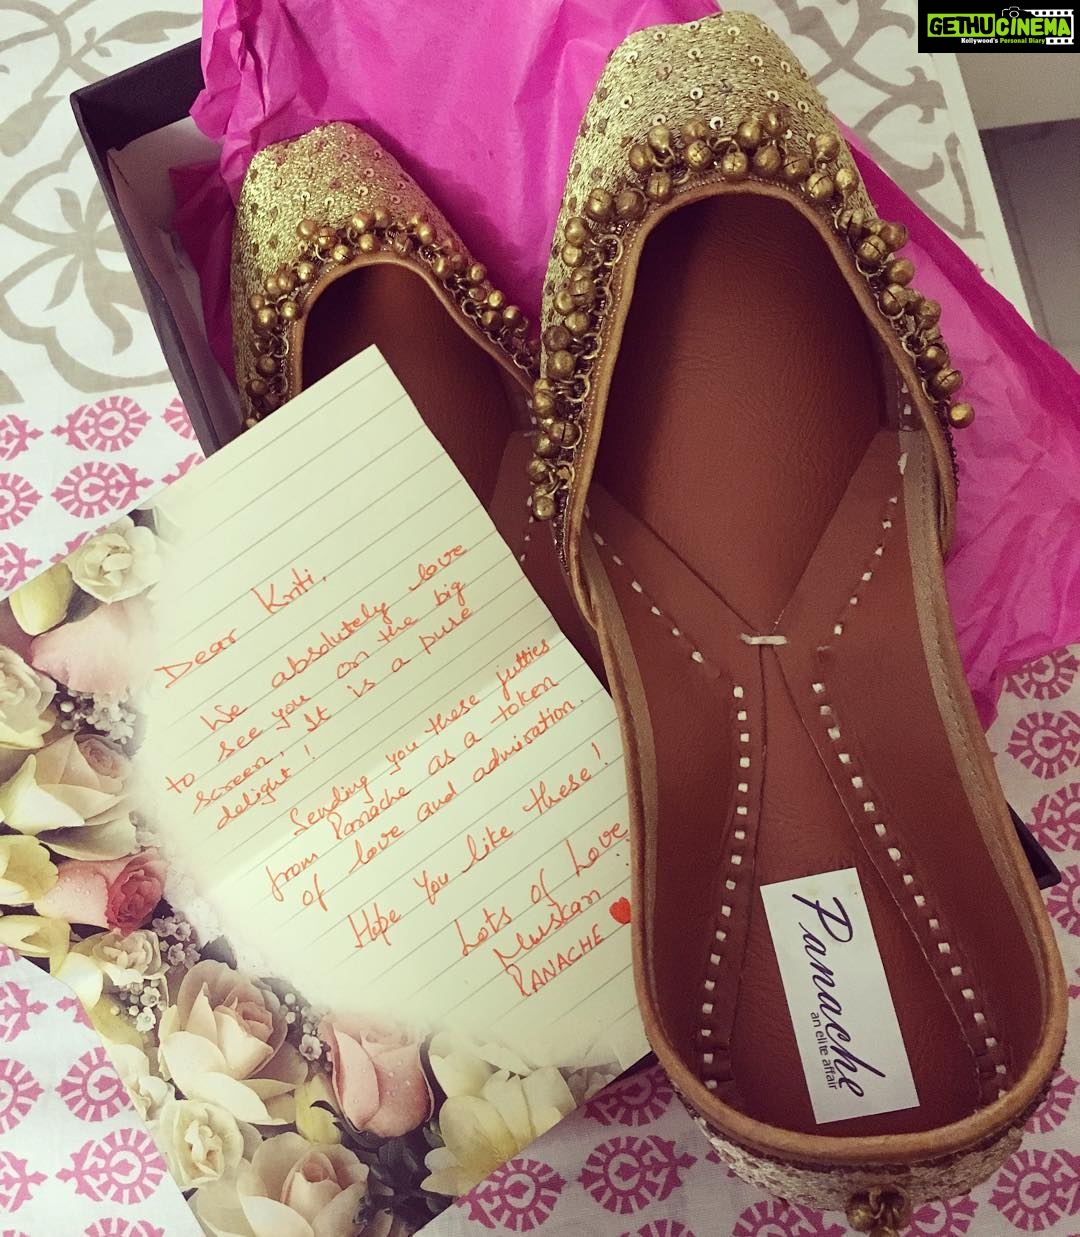 GETHUCINEMA
Kollywood's Personal Diary
Dear Kriti,
We absolutely love
to see you on the big
screen! It is a pure
delight!
Sending you these jutties
from Panache as a token
of love and admiration.
Hope you like these!
Lots of Love
Muskan
PANACHE
Panache
an elite affair